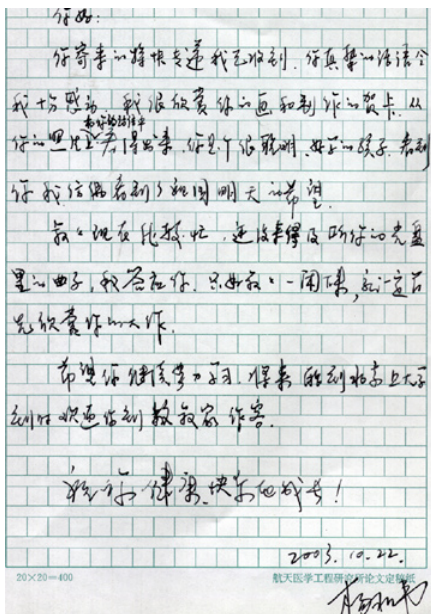 你好:
你寄来的特快专递我已收到.你真挚的话语令
我十分感动.我很欣赏你的画和制作的贺卡.从
和你的话语中
你的照片上看得出来,你是个很聪明、好学的孩子.看到
你我仿佛看到了祖国明天的希望.
叔叔现在比较忙,还没来得及听你的光盘
里的曲子,我答应你.只要叔叔一闲暇,就一定首
先欣赏你的大作.
希望你继续努力学习,将来能到北京上大学
到时欢迎你到叔叔家作客.
祝你健康、快乐的成长!
2003.10.22.
20×20=400 航天医学工程研究所论文定稿纸
杨利伟